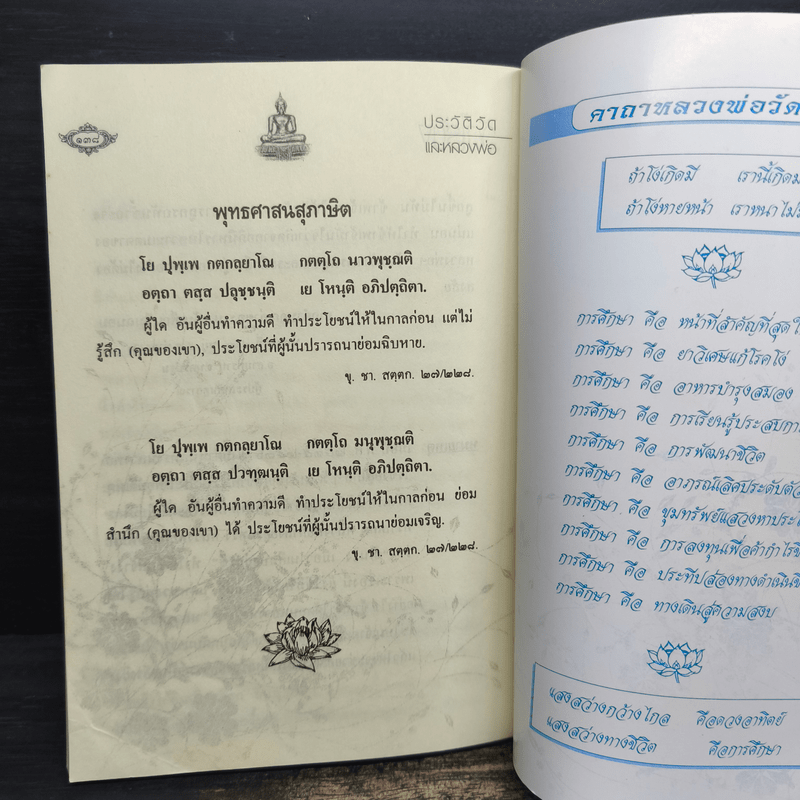 ๑๓๘
ประวัติวัด
และหลวงพ่อ
พุทธศาสนสุภาษิต
โย ปุพฺเพ กตกลฺยาโณ กตตฺโถ นาวพุชฺฌติ
อตฺถา ตสฺส ปลุชฺชนฺติ เย โหนฺติ อภิปตฺถิตา.
ผู้ใด อันผู้อื่นทำความดี ทำประโยชน์ให้ในกาลก่อน แต่ไม่
รู้สึก (คุณของเขา), ประโยชน์ที่ผู้นั้นปรารถนาย่อมฉิบหาย.
ขุ. ชา. สตฺตก. ๒๗/๒๒๘.
โย ปุพฺเพ กตกลฺยาโณ กตตฺโถ มนุพุชฺฌติ
อตฺถา ตสฺส ปวฑฺฒนฺติ เย โหนฺติ อภิปตฺถิตา.
ผู้ใด อันผู้อื่นทำความดี ทำประโยชน์ให้ในกาลก่อน ย่อม
สำนึก (คุณของเขา) ได้ ประโยชน์ที่ผู้นั้นปรารถนาย่อมเจริญ.
ขุ. ชา. สตฺตก. ๒๗/๒๒๘.
คาถาหลวงพ่อวัด
ถ้าโง่เกิดมี เรานี้เกิดม
ถ้าโง่หายหน้า เราหนาไม่
การศึกษา คือ หน้าที่สำคัญที่สุดใ
การศึกษา คือ ยาวิเศษแก้โรคโง่
การศึกษา คือ อาหารบำรุงสมอง
การศึกษา คือ การเรียนรู้ประสบกา
การศึกษา คือ การพัฒนาชีวิต
การศึกษา คือ อาภรณ์เลิศประดับตัว
การศึกษา คือ ขุมทรัพย์แสวงหาประโ
การศึกษา คือ การลงทุนเพื่อค้ากำไรชี
การศึกษา คือ ประทีปส่องทางดำเนินชี
การศึกษา คือ ทางเดินสู่ความสงบ
แสงสว่างกว้างไกล คือดวงอาทิตย์
แสงสว่างทางชีวิต คือการศึกษา